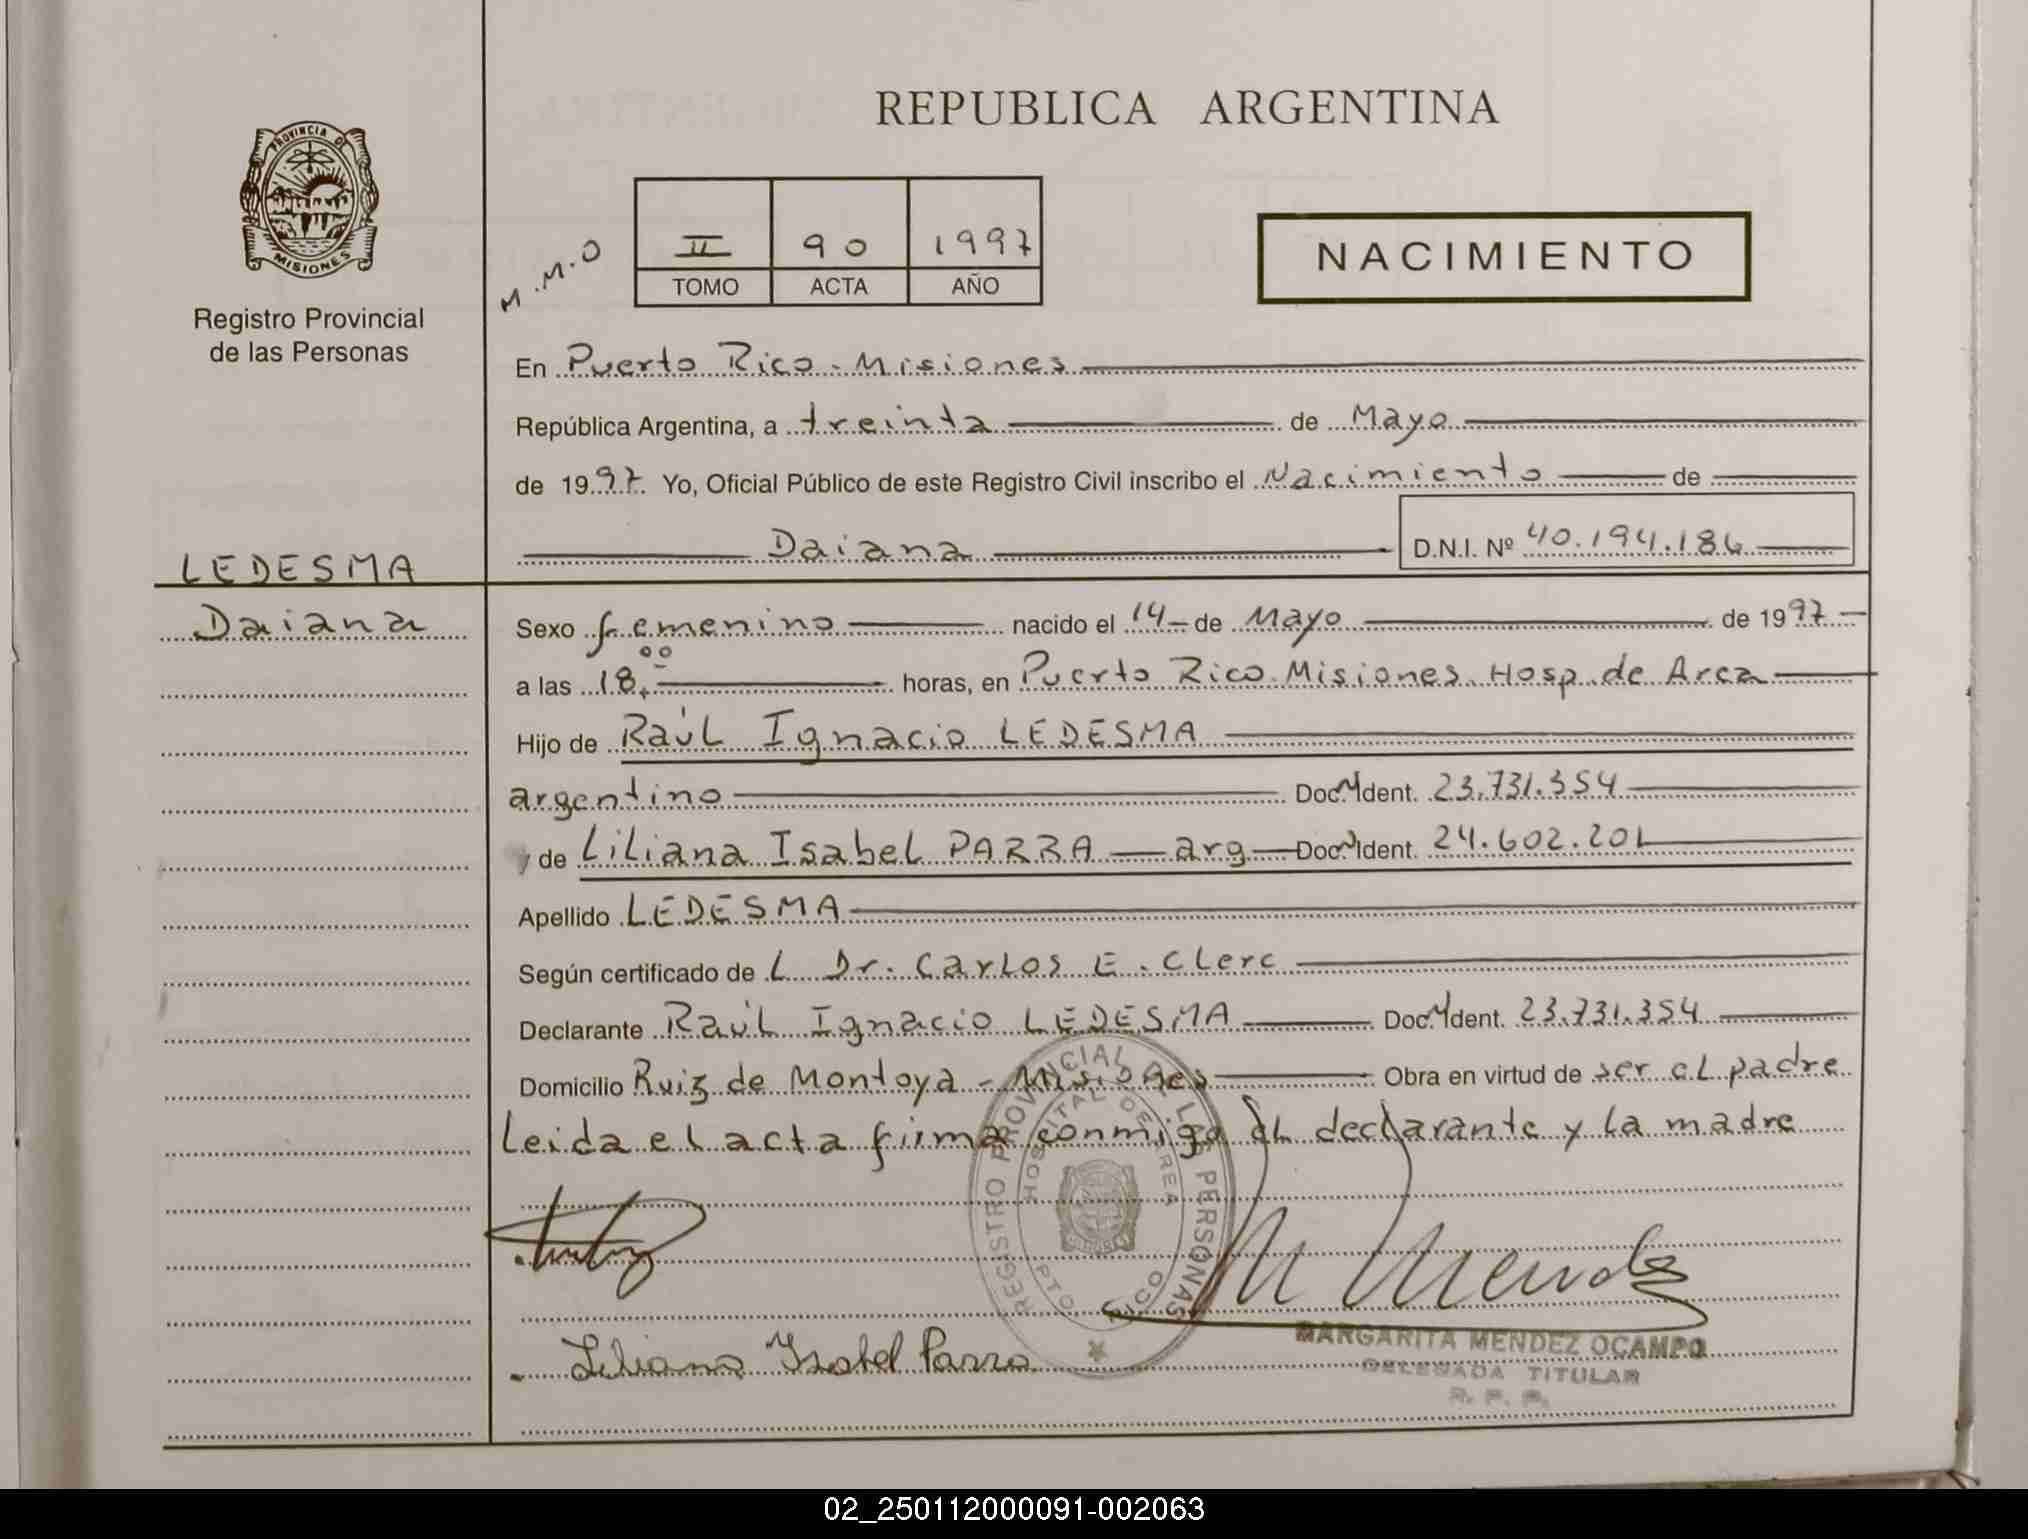 REPUBLICA ARGENTINA
PROVINCIA DE
MISIONES
Registro Provincial
de las Personas
M.M.O
II 90 1997
TOMO ACTA AÑO
NACIMIENTO
En Puerto Rico - Misiones
República Argentina, a treinta de Mayo
de 1997. Yo, Oficial Público de este Registro Civil inscribo el Nacimiento de
Daiana D.N.I. Nº 40.194.186
LEDESMA
Daiana
Sexo femenino nacido el 14 de Mayo de 1997
a las 18.00 horas, en Puerto Rico. Misiones. Hosp. de Area
Hijo de Raúl Ignacio LEDESMA
argentino Doc. Ident. 23.731.354
y de Liliana Isabel PARRA arg Doc. Ident. 24.602.201
Apellido LEDESMA
Según certificado de L Dr. Carlos E. Clerc
Declarante Raúl Ignacio LEDESMA Doc. Ident. 23.731.354
Domicilio Ruiz de Montoya - Misiones Obra en virtud de ser el padre
Leida el acta firma conmigo el declarante y la madre
REGISTRO PROVINCIAL DE LAS PERSONAS
HOSPITAL DE AREA
PTO RICO
M Mendez
Liliana Isabel Parra
MARGARITA MENDEZ OCAMPO
DELEGADA TITULAR
R. P. P.
02_250112000091-002063